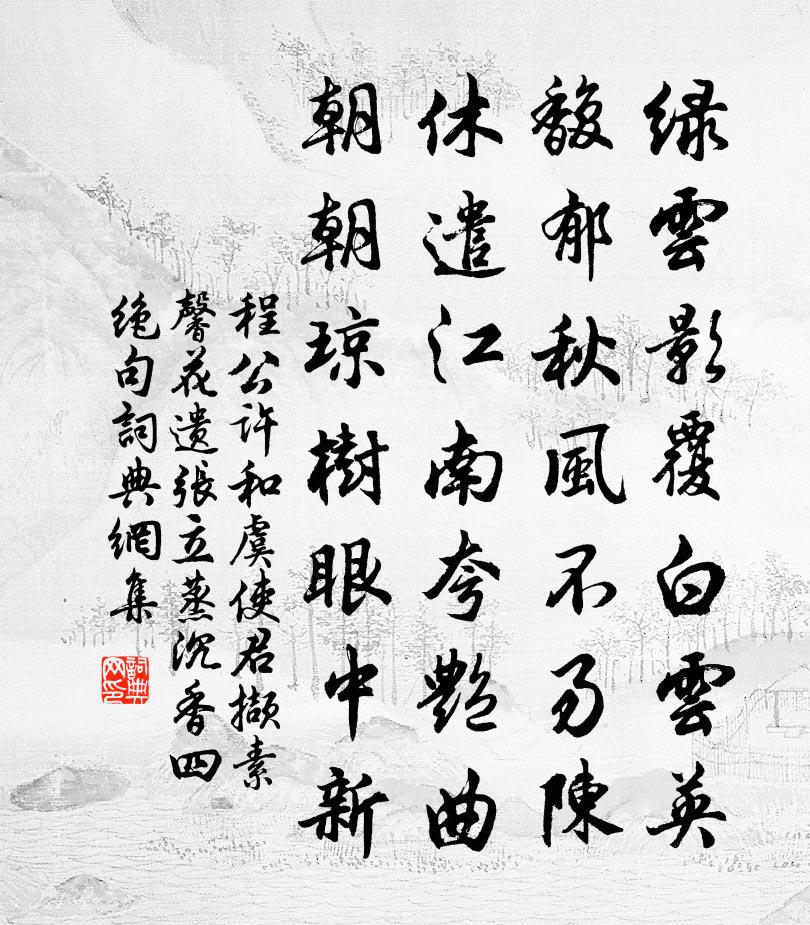 绿雲影覆白雲英
馥郁秋風不多陳
休遣江南夸艷曲
朝朝琼樹眼中新
程公许和虞使君撷素
馨花遗張立蒸沉香四
绝句詞典網集
詞典网印